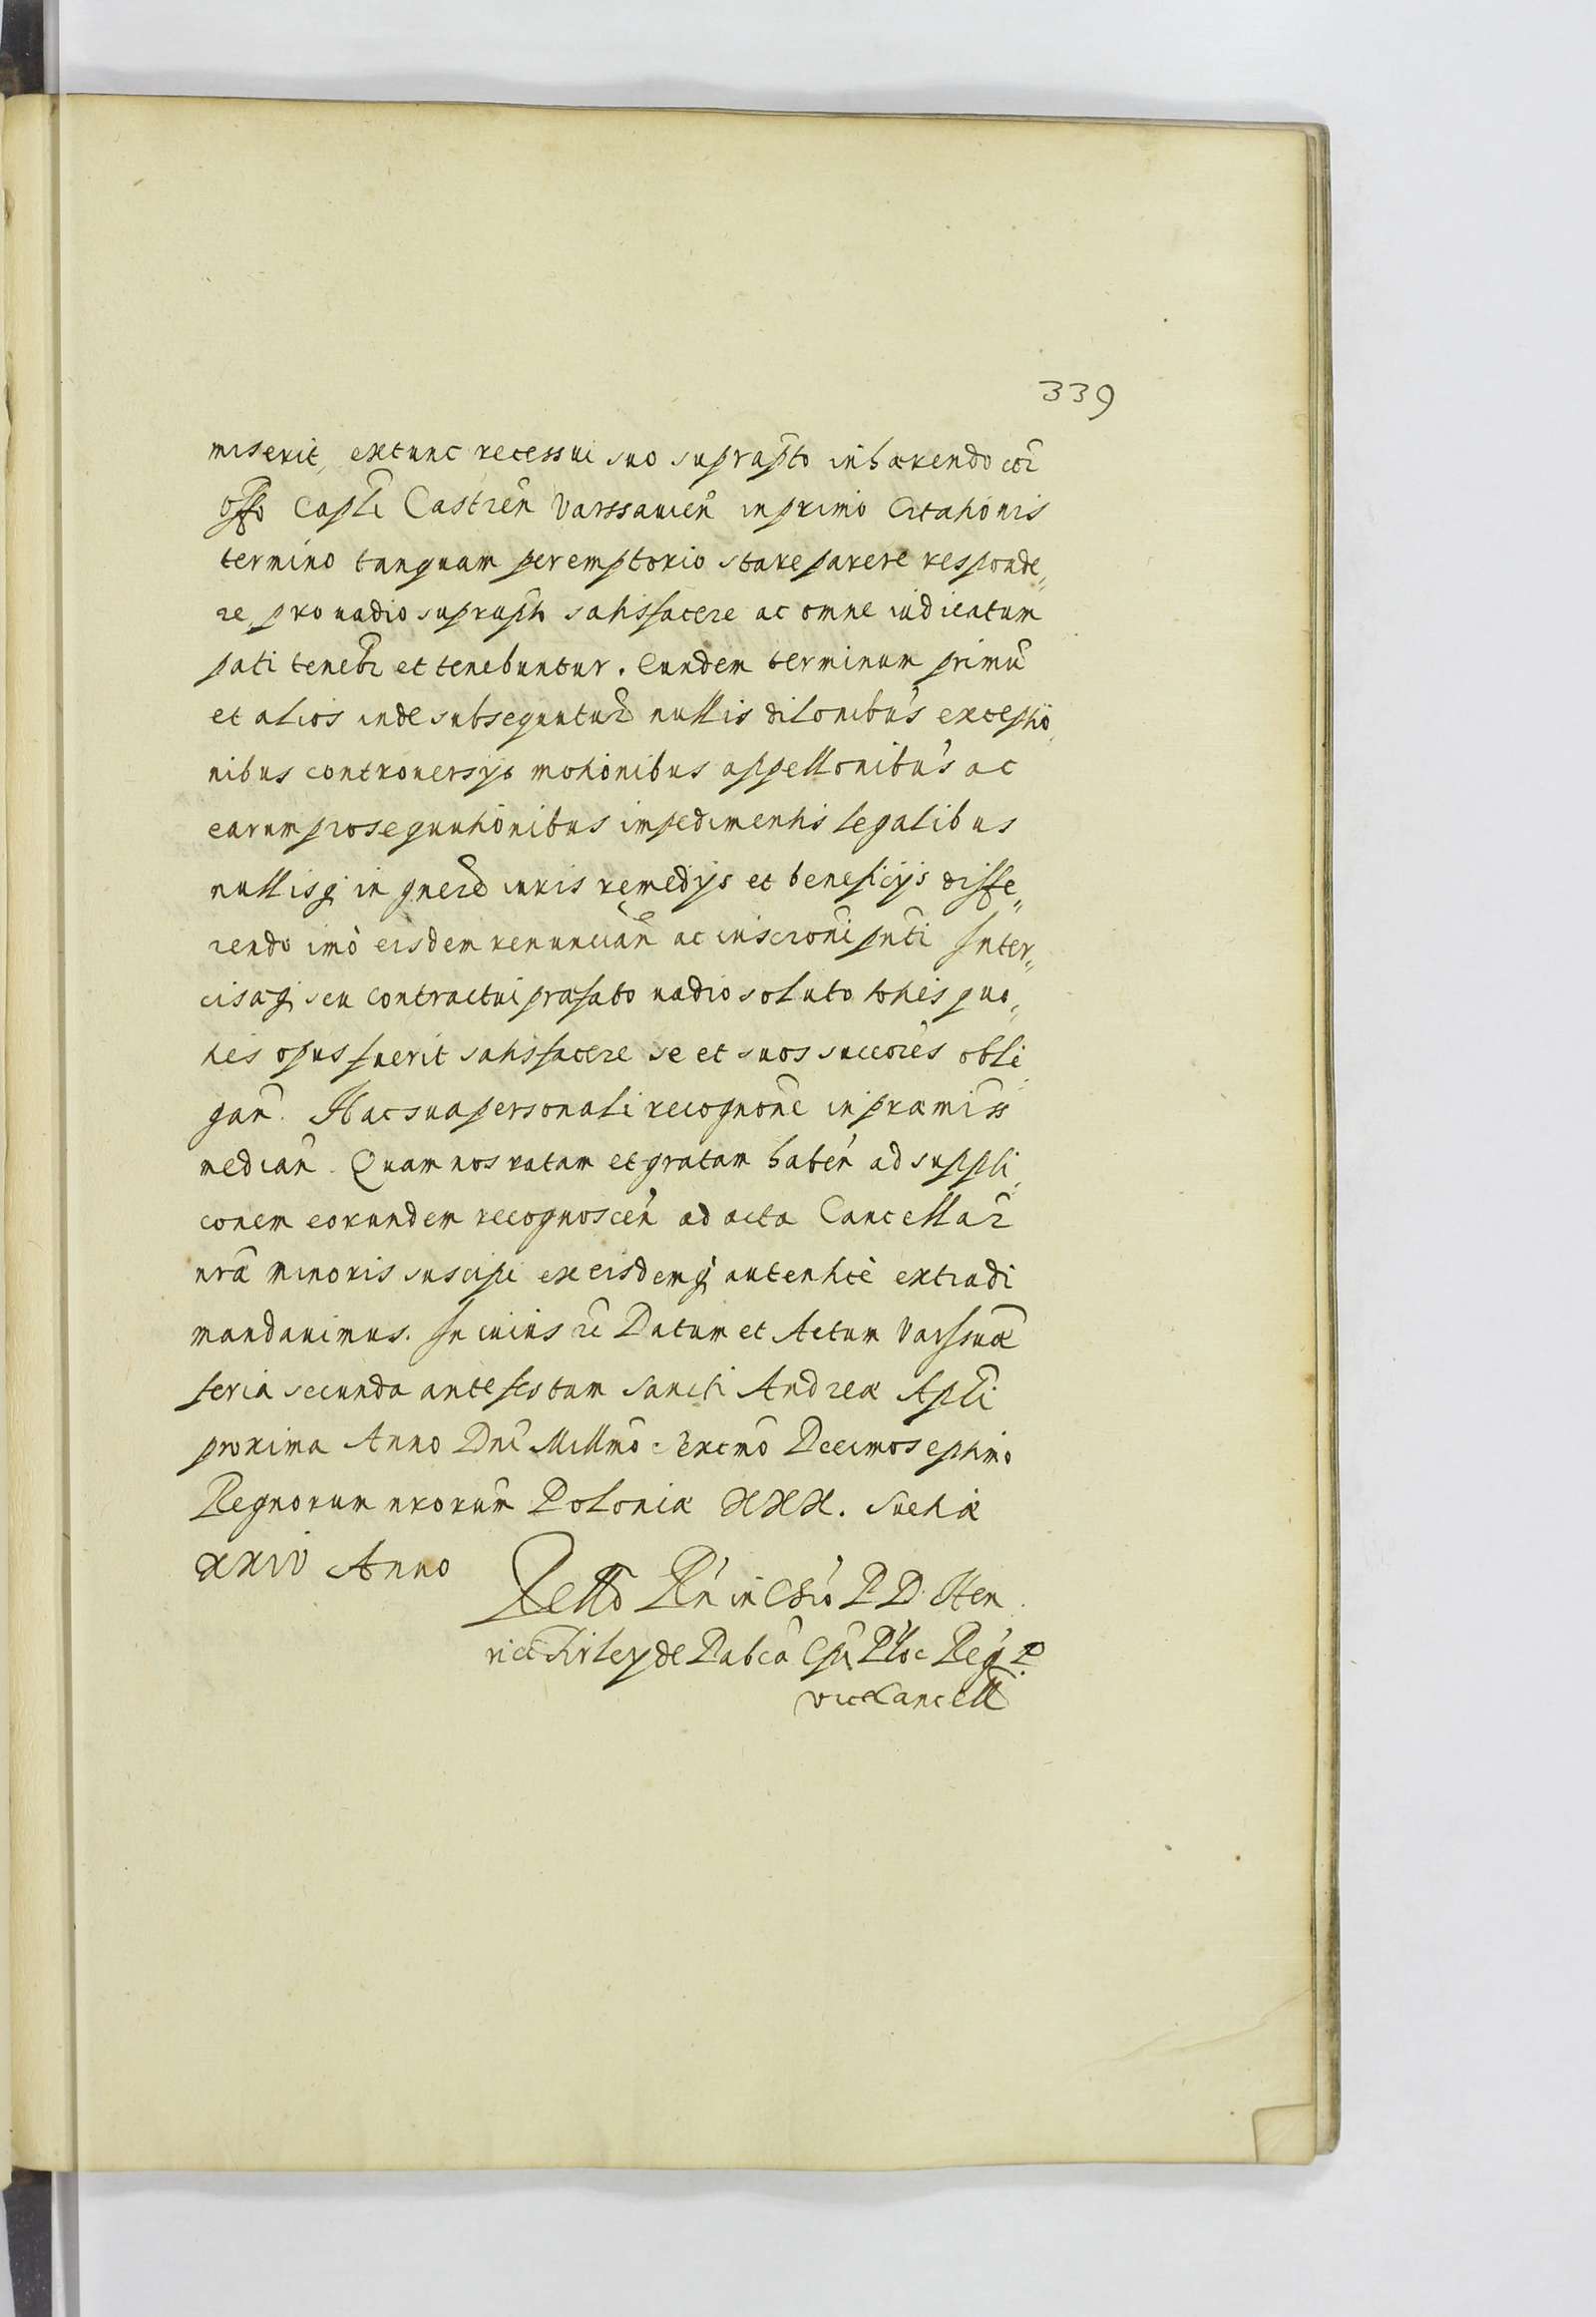 339
miserit, extunc recessui suo suprapto inhærendo cor
offo Capli Castren Varssauien in primo Citationis
termino tanquam peremptorio stare parere responde„
re, pro vadio suprapti satisfacere ac omne iudicatum
pati tenebr et tenebuntur. Eundem terminum primū
et alios inde subsequutur nullis dilonibus exceptio„
nibus controuersys motionibus appellonibus ac
earum prosequutionibus impedimentis legalibus
nullisq; in gnere iuris remedys et beneficijs diffe„
rendo imò eisdem renuncian ac inscroni pnti Inter„
cisæq; seu contractui præfato vadio soluto toties quo„
ties opus fuerit satisfacere se et suos succores obli
gan. Hac sua personali recognone in præmiss
median. Quam nos ratam et gratam haben ad suppli„
conem eorundem recognoscen ad acta Cancellar
nræ minoris suscipi ex eisdemq; autentice extradi
mandauimus. In cuius rei Datum et Actum Varssuæ
feria secunda ante festum Sancti Andreæ Apli
proxima Anno Dni Millmo Sexcmo Decimoseptimo
Regnorum nrorum Poloniæ XXX. Suetiæ
XXIV Anno
Rello Rn in Chro P D Hen
rici Firley de Dabca Epi Ploc Reg P
viceCancell